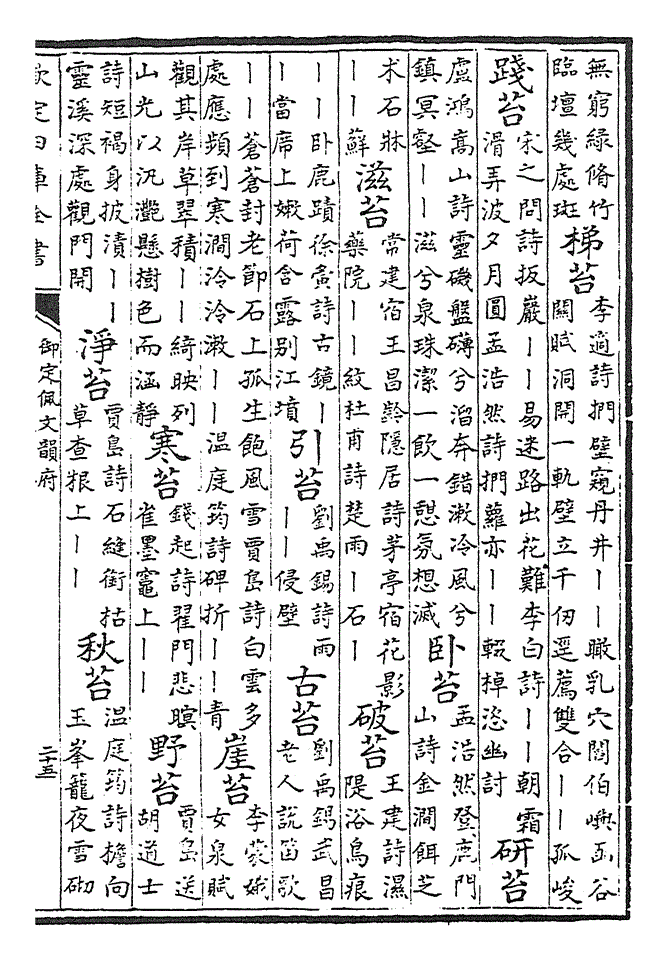 無窮緑脩竹
臨壇幾處斑
梯苔
李適詩捫壁窺丹井丨丨瞰乳穴闊伯嶼函谷
關賦洞開一軌壁立千仞逕薦雙合丨丨孤峻
踐苔
宋之問詩扳巖丨丨易迷路出花難李白詩丨丨朝霜
滑弄波夕月圓孟浩然詩捫蘿亦丨丨輟棹恣幽討
研苔
盧鴻嵩山詩靈磯盤礴兮溜奔錯漱冷風兮
鎮冥壑丨丨滋兮泉珠潔一飲一憩氛想滅
卧苔
孟浩然登鹿門
山詩金澗餌芝
木石牀
丨丨蘚
滋苔
常建宿王昌齡隱居詩茅亭宿花影
藥院丨丨紋杜甫詩楚雨丨石丨
破苔
王建詩濕
隄浴鳥痕
丨丨卧鹿蹟徐夤詩古鏡丨
丨當席上嫩荷含露别江墳
引苔
劉禹錫詩雨
丨丨侵壁
古苔
劉禹錫武昌
老人説笛歌
丨丨蒼蒼封老節石上孤生飽風雪賈島詩白雲多
處應頻到寒澗泠泠漱丨丨温庭筠詩碑折丨丨青
崖苔
李蒙娥
女泉賦
觀其岸草翠積丨丨綺映列
山光以汎灔懸樹色而涵靜
寒苔
錢起詩翟門悲暝
雀墨竈上丨丨
野苔
賈島送
胡道士
詩短褐身披漬丨丨
靈溪深處觀門開
淨苔
賈島詩石縫銜枯
草查根上丨丨
秋苔
温庭筠詩擔向
玉峯籠夜雪砌
欽定四庫全書
御定佩文韻府
二十五